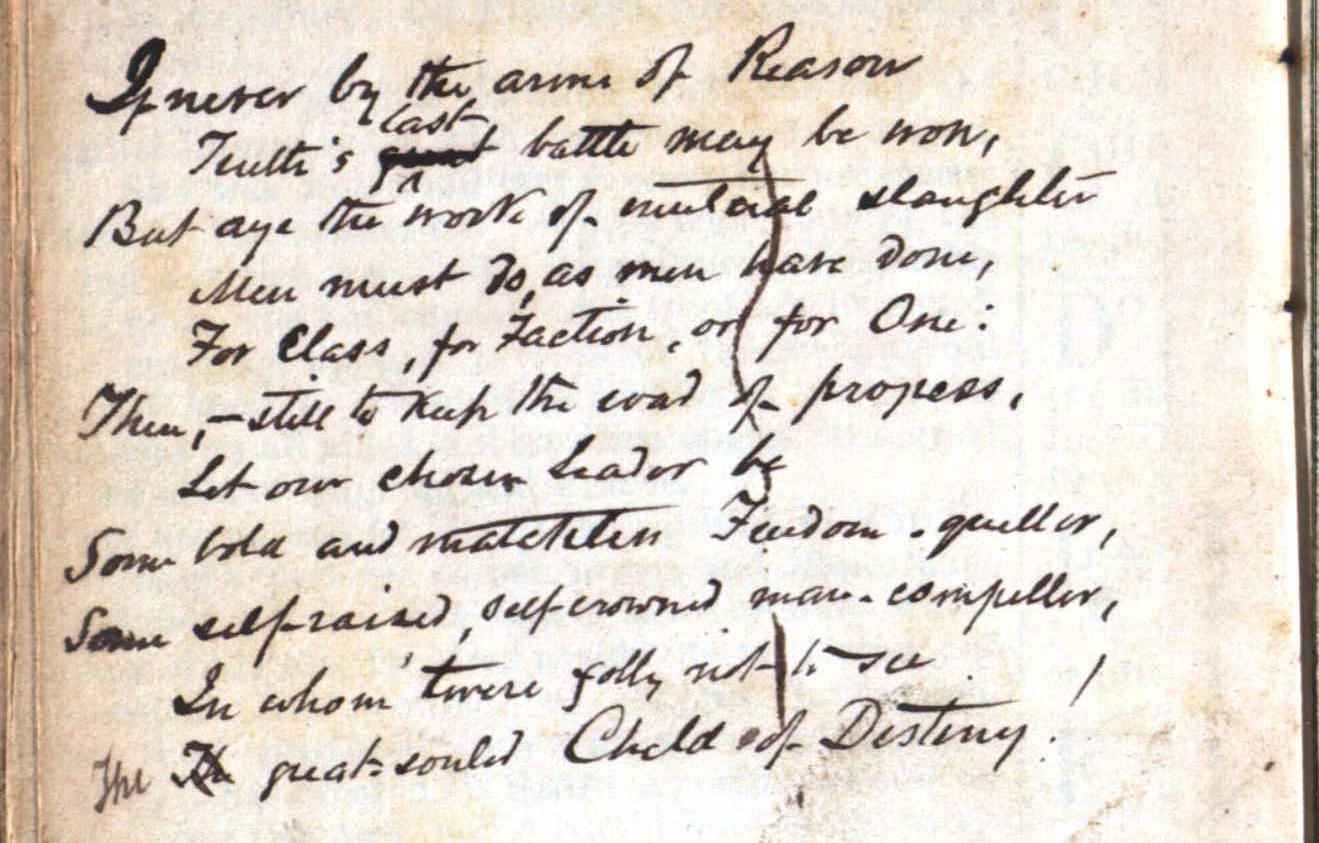 If never by the arms of Reason
Truth's last battle may be won,
But aye the work of mutual slaughter
Men must do, as men have done,
For Class, for Faction, or for One:
Then, – still to keep the road of progress,
Let our chosen leador be
Some bold and matchless Freedom-queller,
Some self-raised, self-crowned man-compeller,
In whom 'twere folly not to see
The great-souled Child of Destiny!